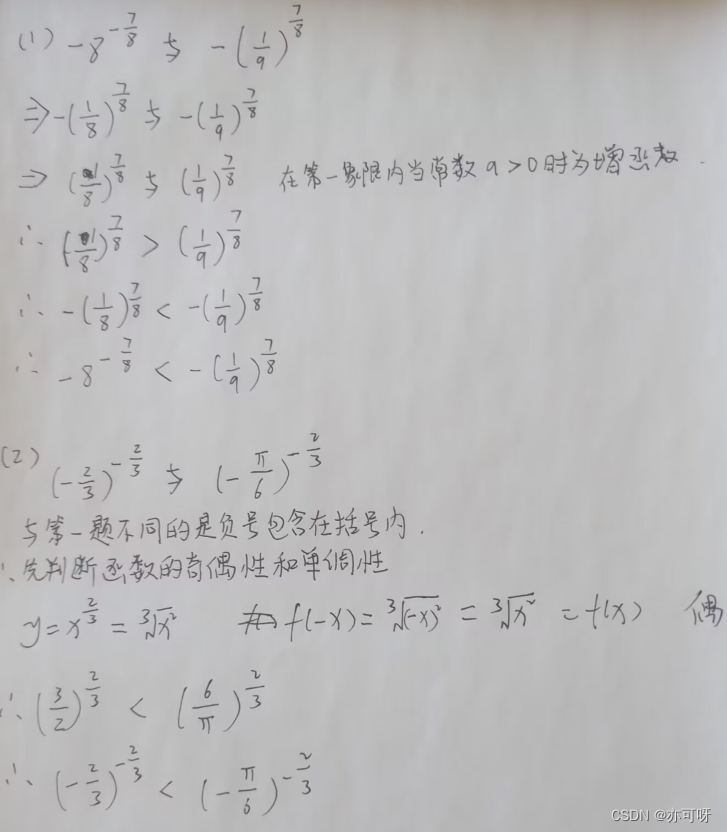 (1) -8^{-7/8} 与 -(1/9)^{7/8}
⇒ -(1/8)^{7/8} 与 -(1/9)^{7/8}
⇒ (1/8)^{7/8} 与 (1/9)^{7/8} 在第一象限内当常数a>0时为增函数.
∴ (1/8)^{7/8} > (1/9)^{7/8}
∴ -(1/8)^{7/8} < -(1/9)^{7/8}
∴ -8^{-7/8} < -(1/9)^{7/8}
(2) (-2/3)^{-2/3} 与 (-π/6)^{-2/3}
与第一题不同的是负号包含在括号内.
∴先判断函数的奇偶性和单调性
y=x^{2/3}=∛x² f(-x)=∛(-x)²=∛x²=f(x) 偶
∴ (3/2)^{2/3} < (6/π)^{2/3}
∴ (-2/3)^{-2/3} < (-π/6)^{-2/3}
CSDN @亦可呀